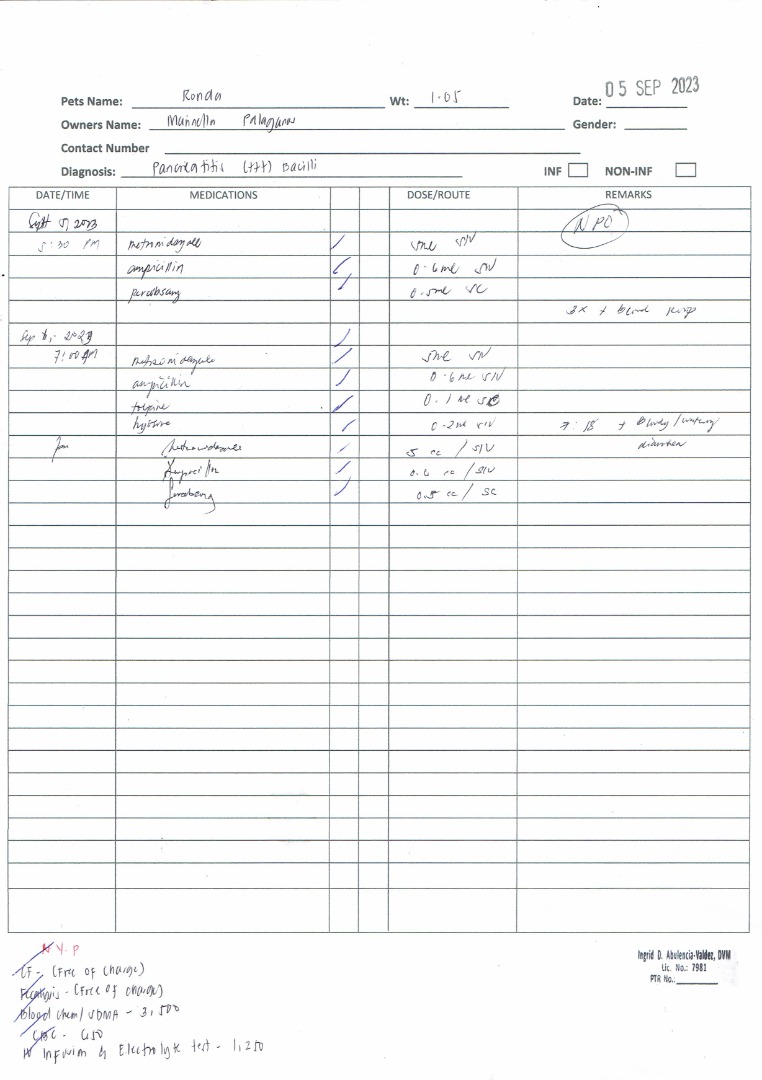 05 SEP 2023
Pets Name: Ronda Wt: 1.05 Date:
Owners Name: Gender:
Contact Number
Diagnosis: Pancreatitis (+++) Bacilli INF NON-INF
DATE/TIME MEDICATIONS DOSE/ROUTE REMARKS
Sept 5, 2023 NPO
5:30 PM metronidazole 5ml SIV
ampicillin 0.6ml SIV
0.5ml SC
3x + blood
Sep 6, 2023
7:00 AM metronidazole 5ml SIV
ampicillin 0.6ml SIV
0.1ml
0.2ml SIV + Bloody/watery
metronidazole 5 cc / SIV diarrhea
Ampicillin 0.6 cc / SIV
0.5 cc / SC
N.Y.P
CF - (Free of charge)
Fecalysis - (Free of charge)
Blood chem/SDMA - 3,500
CBC - 650
IV Infusion & Electrolyte test - 1,250
Ingrid D. Abulencia-Valdez, DVM
Lic. No.: 7981
PTR No.: